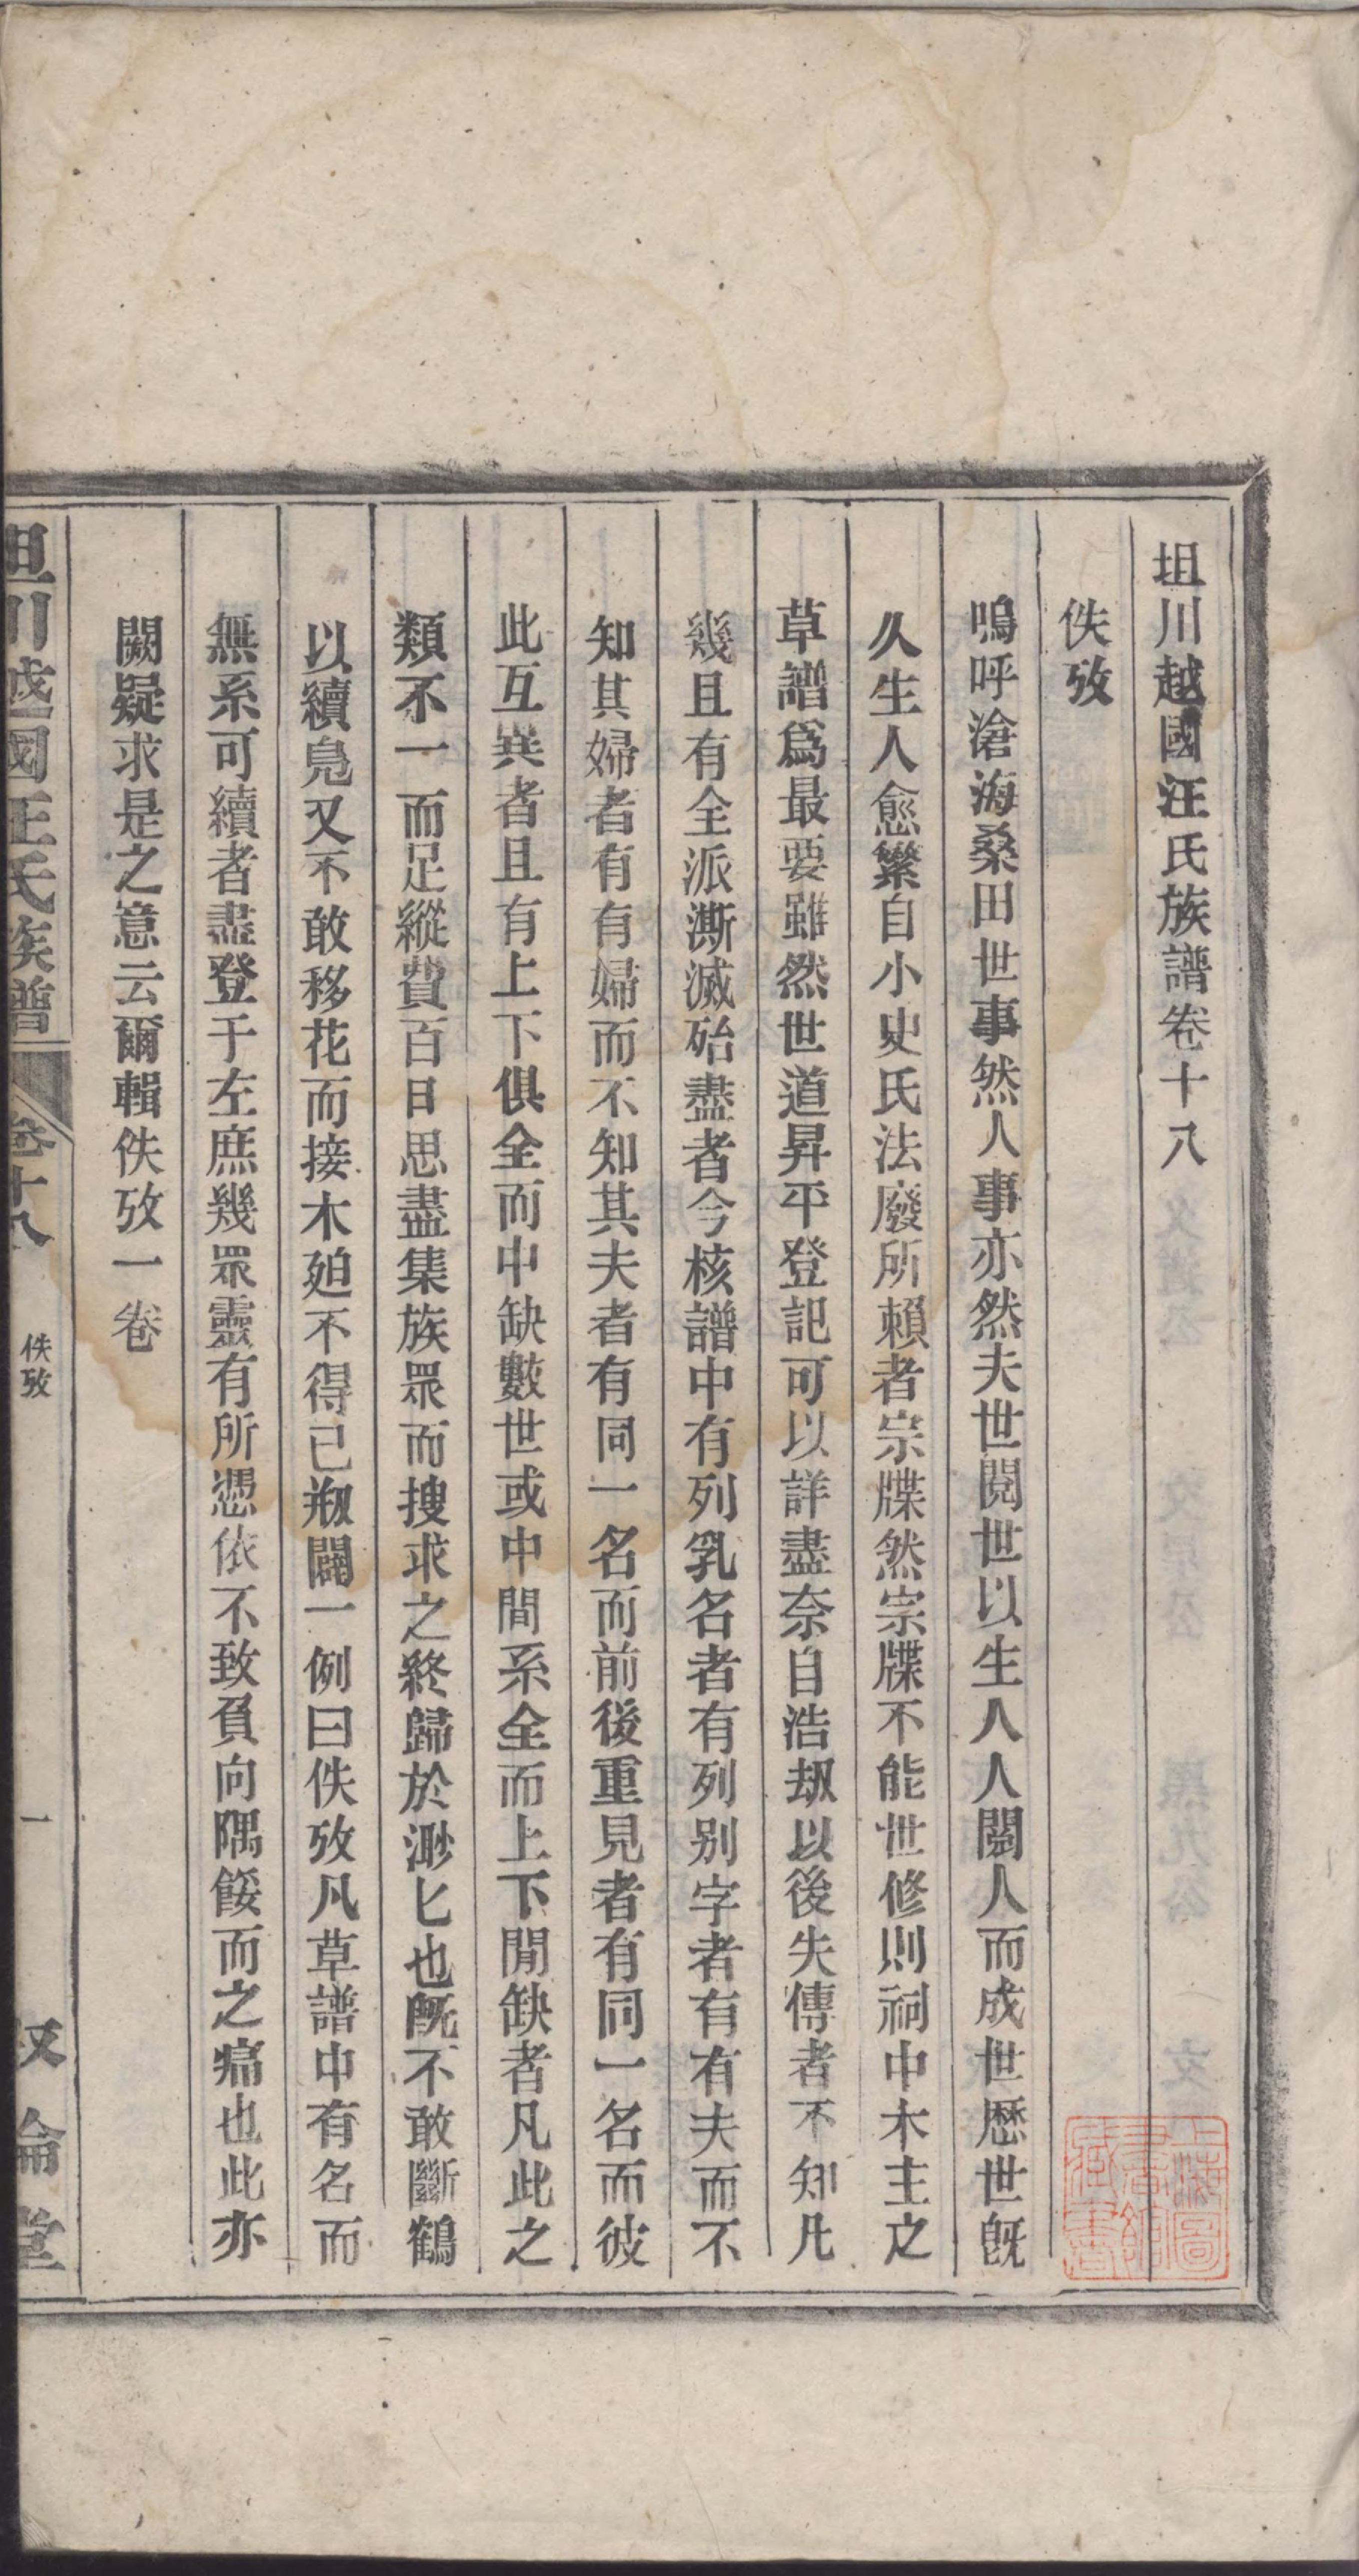 坦川越國汪氏族譜卷十八
佚攷
嗚呼滄海桑田世事然人事亦然夫世閱世以生人人閱人而成世歷世旣
久生人愈繁自小史氏法廢所賴者宗牒然宗牒不能世修則祠中木主之
草譜爲最要雖然世道昇平登記可以詳盡奈自浩刼以後失傳者不知凡
幾且有全派澌滅殆盡者今核譜中有列乳名者有列別字者有有夫而不
知其婦者有有婦而不知其夫者有同一名而前後重見者有同一名而彼
此互異者且有上下俱全而中缺數世或中間系全而上下間缺者凡此之
類不一而足縱費百日思盡集族眾而搜求之終歸於渺匕也旣不敢斷鶴
以續鳧又不敢移花而接木廹不得已刱闢一例曰佚攷凡草譜中有名而
無系可續者盡登于左庶幾眾靈有所憑依不致負向隅餒而之痛也此亦
闕疑求是之意云爾輯佚攷一卷
坦川越國汪氏族譜
卷十八
佚攷
一
叙倫堂
上海圖書館藏書